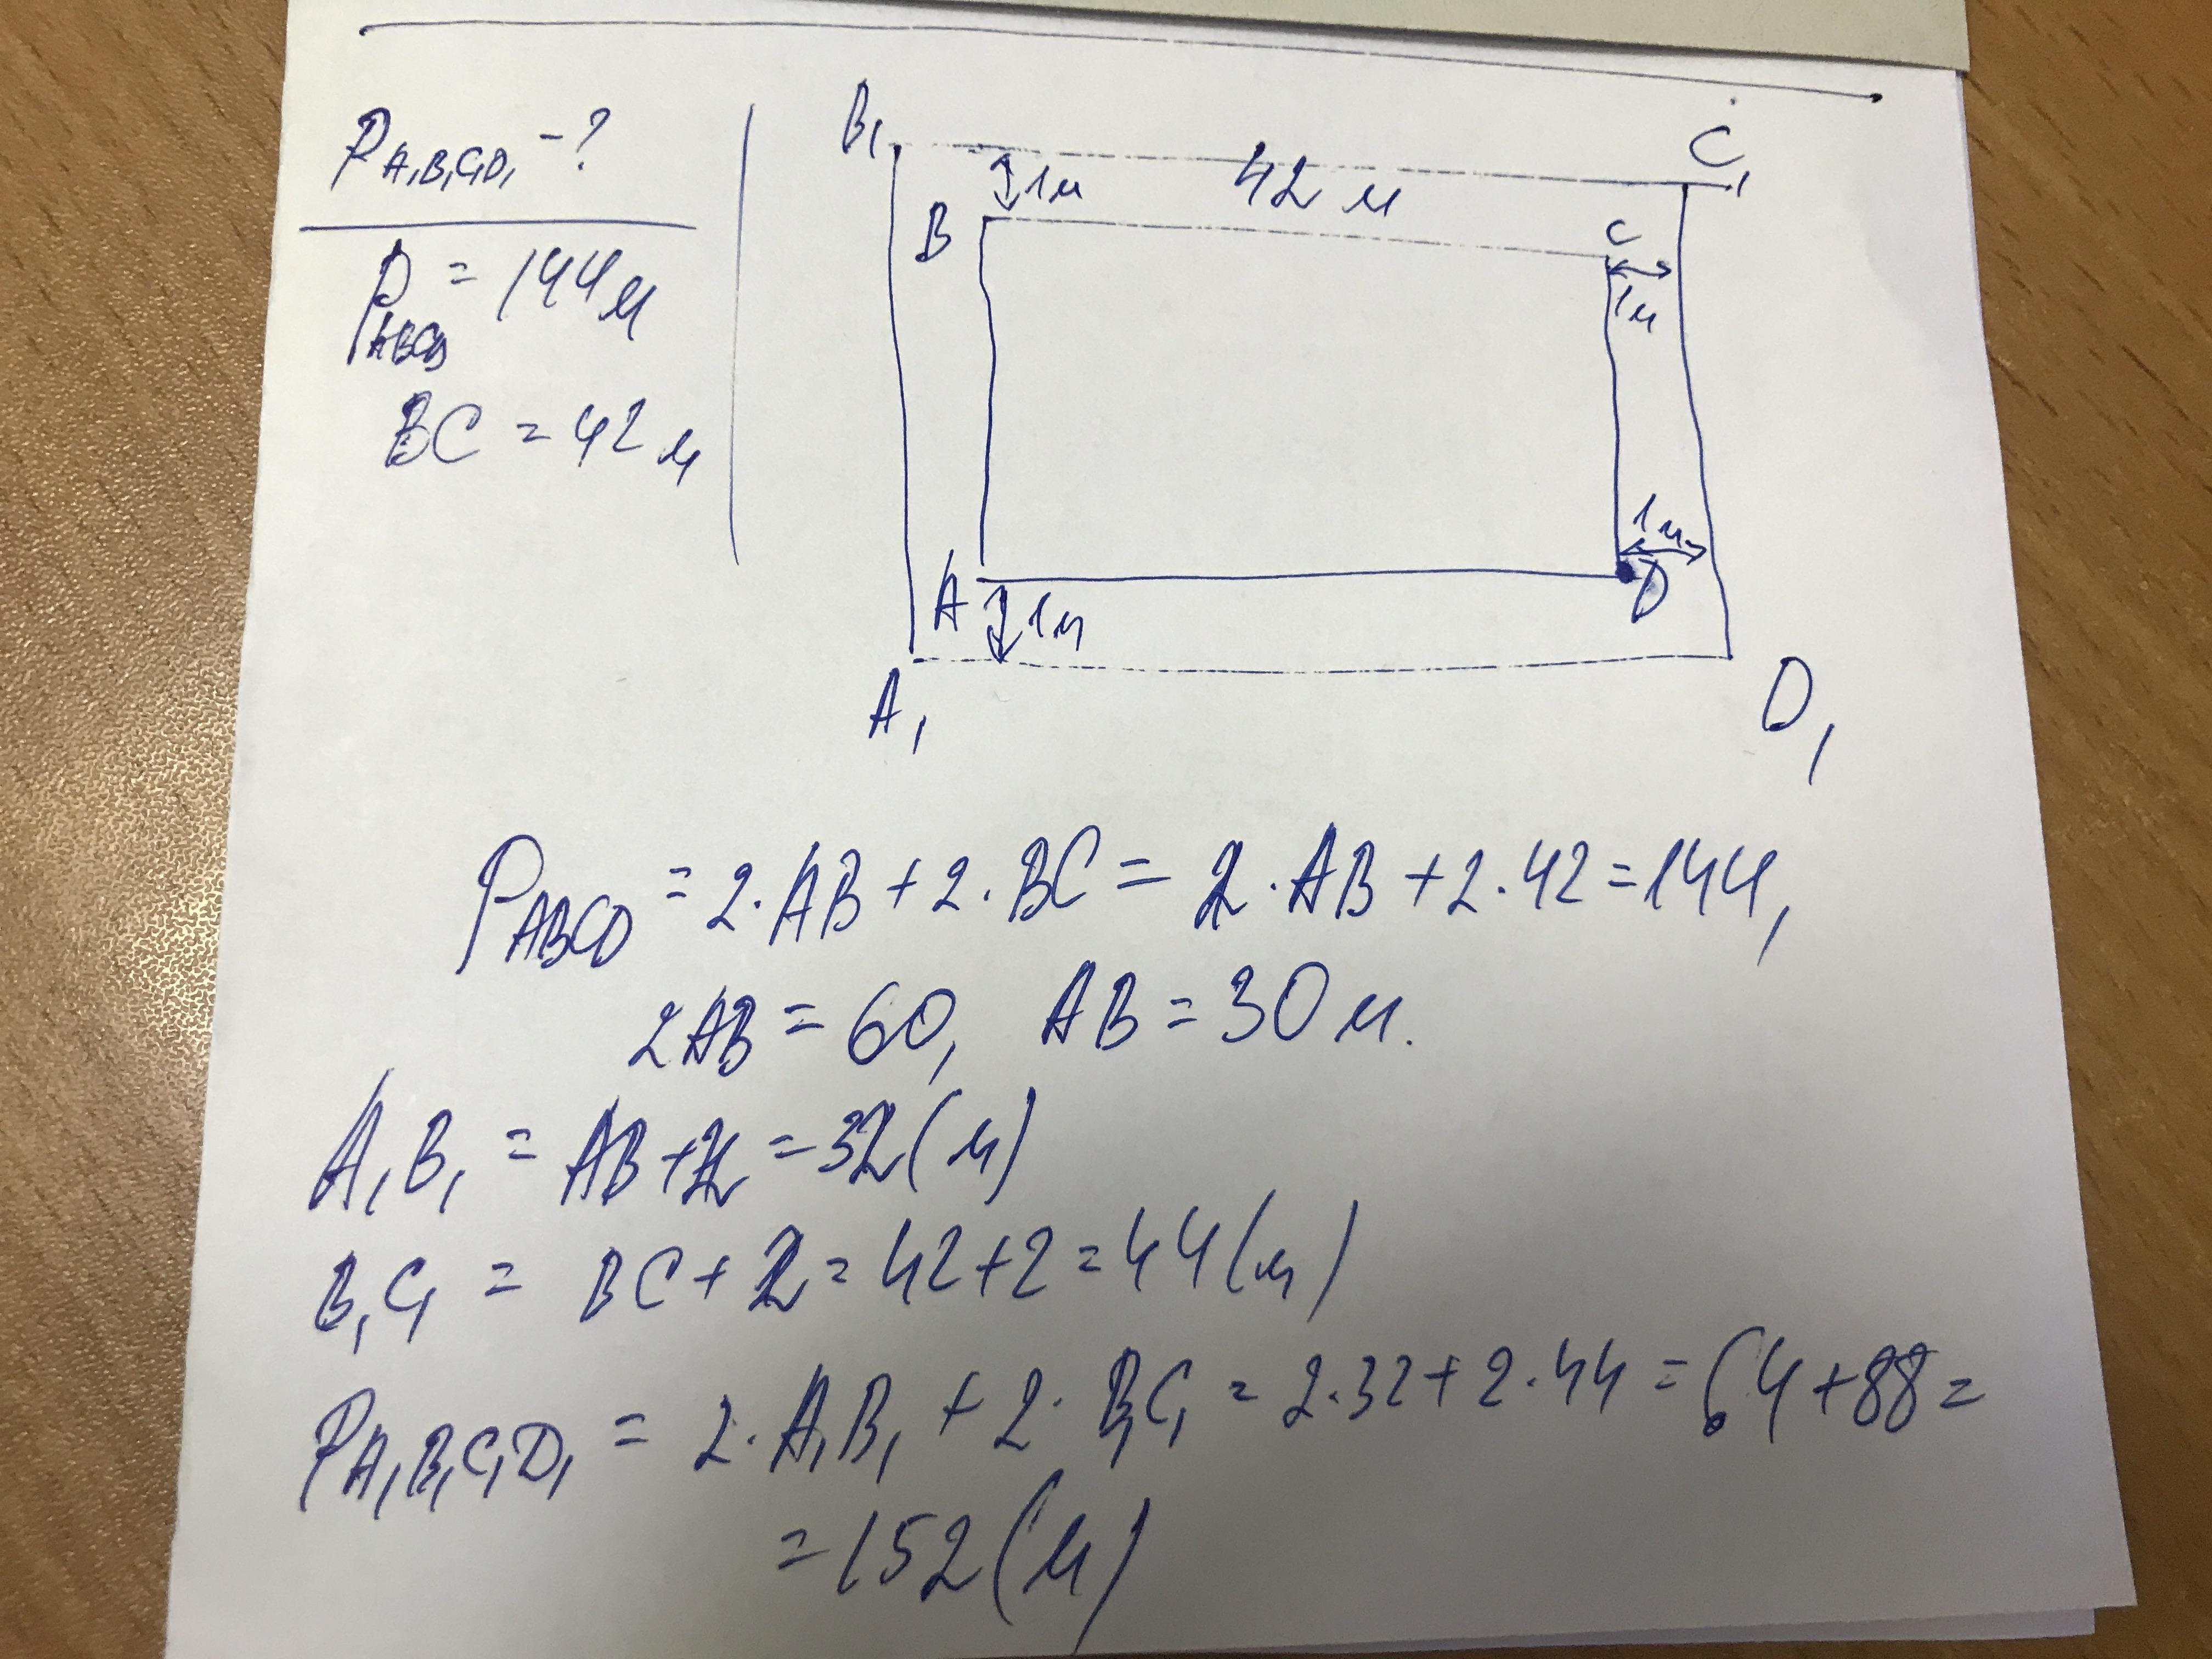 P A₁B₁C₁D₁ - ?
P ABCD = 144 м
BC = 42 м
B₁ C₁
1м 42 м
B C
1м
1м
A D
1м
A₁ D₁
P ABCD = 2·AB + 2·BC = 2·AB + 2·42 = 144,
2AB = 60, AB = 30 м.
A₁B₁ = AB + 2 = 32 (м)
B₁C₁ = BC + 2 = 42 + 2 = 44 (м)
P A₁B₁C₁D₁ = 2·A₁B₁ + 2·B₁C₁ = 2·32 + 2·44 = 64 + 88 =
= 152 (м)